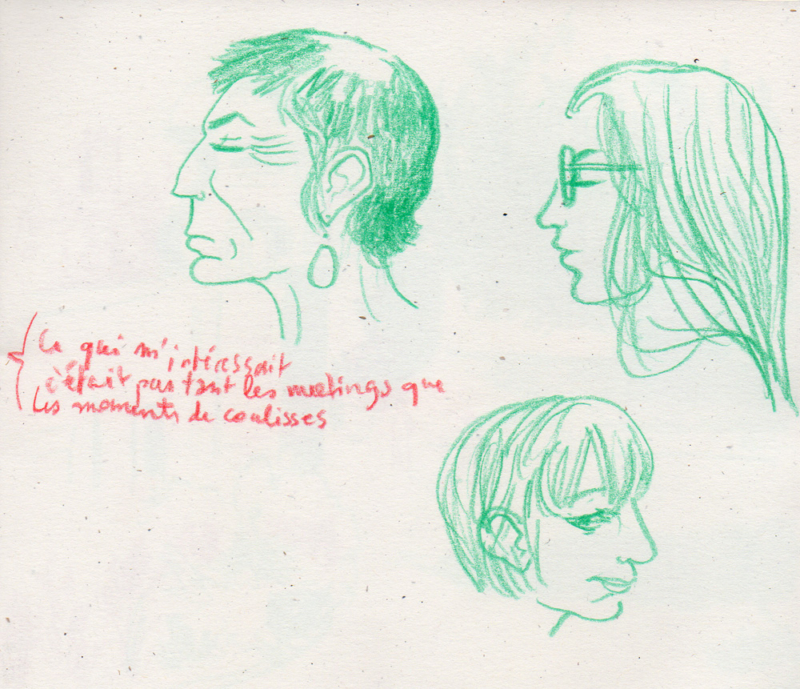 Ce qui m'intéressait
c'était pas tant les meetings que
les moments de coulisses